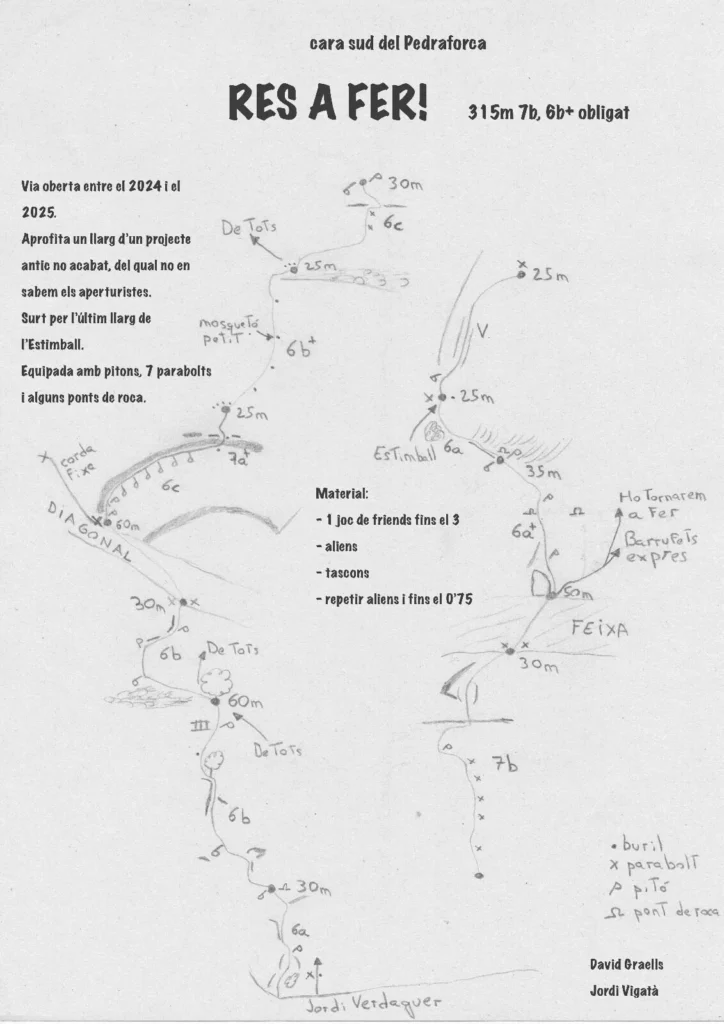 cara sud del Pedraforca
RES A FER!
315m 7b, 6b+ obligat
Via oberta entre el 2024 i el
2025.
Aprofita un llarg d'un projecte
antic no acabat, del qual no en
sabem els aperturistes.
Surt per l'últim llarg de
l'Estimball.
Equipada amb pitons, 7 parabolts
i alguns ponts de roca.
30m
6c
De Tots
25m
mosquetó
petit
6b+
25m
7a+
6c
corda
fixa
60m
DIAGONAL
30m
6b
De Tots
60m
III
De Tots
6b
30m
6a
Jordi Verdaguer
Material:
- 1 joc de friends fins el 3
- aliens
- tascons
- repetir aliens i fins el 0'75
25m
V
25m
Estimball
6a
35m
6a+
Ho Tornarem
a Fer
Barrufets
expres
50m
FEIXA
30m
7b
buril
x parabolt
pitó
pont de roca
David Graells
Jordi Vigatà